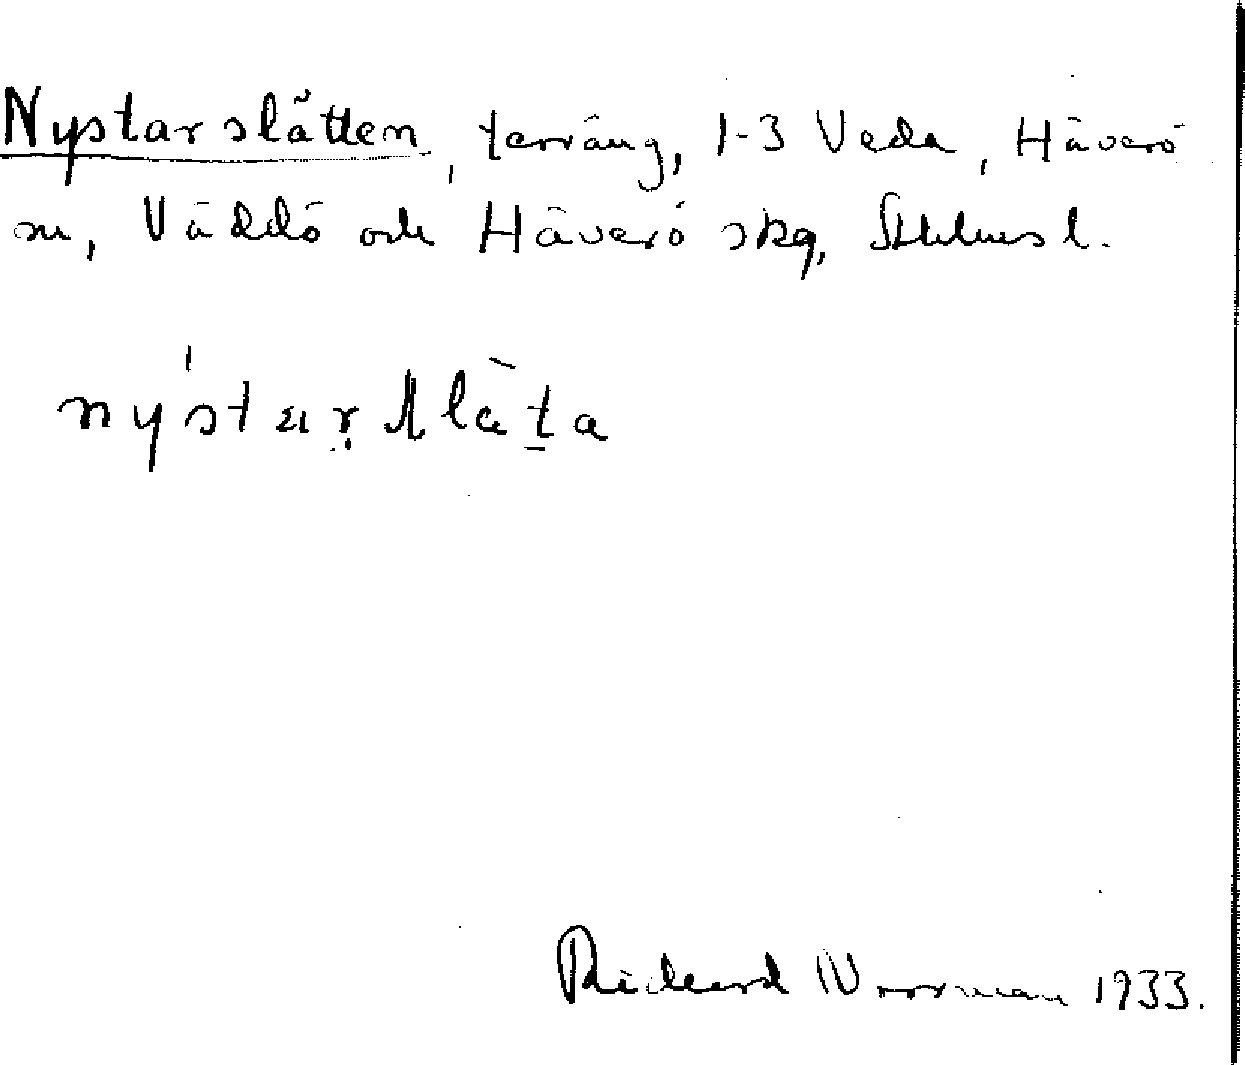 Nystarslätten, terräng, 1-3 Veda, Häverö
sn, Väddö och Häverö skg, Sthlms l.
nýstaṛslàt̲a
Richard Norrman 1933.